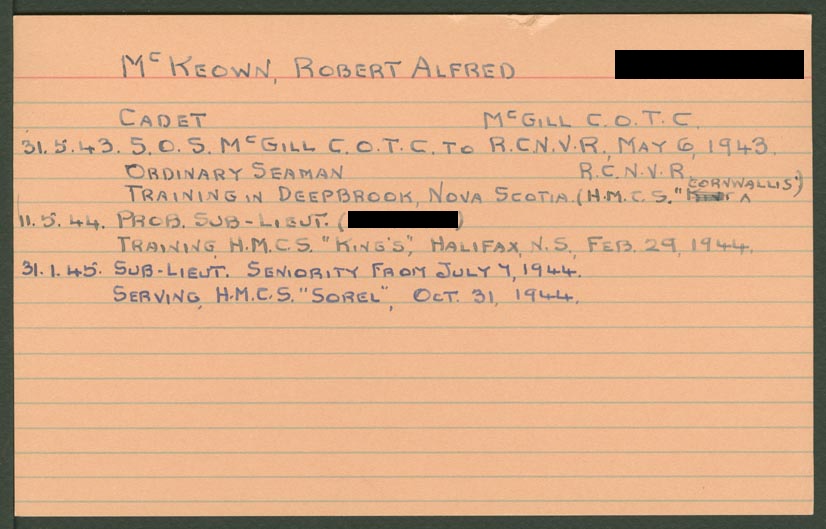 McKEOWN, ROBERT ALFRED
CADET McGILL C.O.T.C.
31.5.43. S.O.S. McGILL C.O.T.C. TO R.C.N.V.R., MAY 6, 1943.
ORDINARY SEAMAN R.C.N.V.R.
TRAINING IN DEEPBROOK, NOVA SCOTIA. (H.M.C.S. "CORNWALLIS")
11.5.44. PROB. SUB-LIEUT. ( )
TRAINING, H.M.C.S. "KING'S", HALIFAX, N.S., FEB. 29, 1944.
31.1.45. SUB-LIEUT. SENIORITY FROM JULY 7, 1944.
SERVING, H.M.C.S. "SOREL", OCT. 31, 1944.